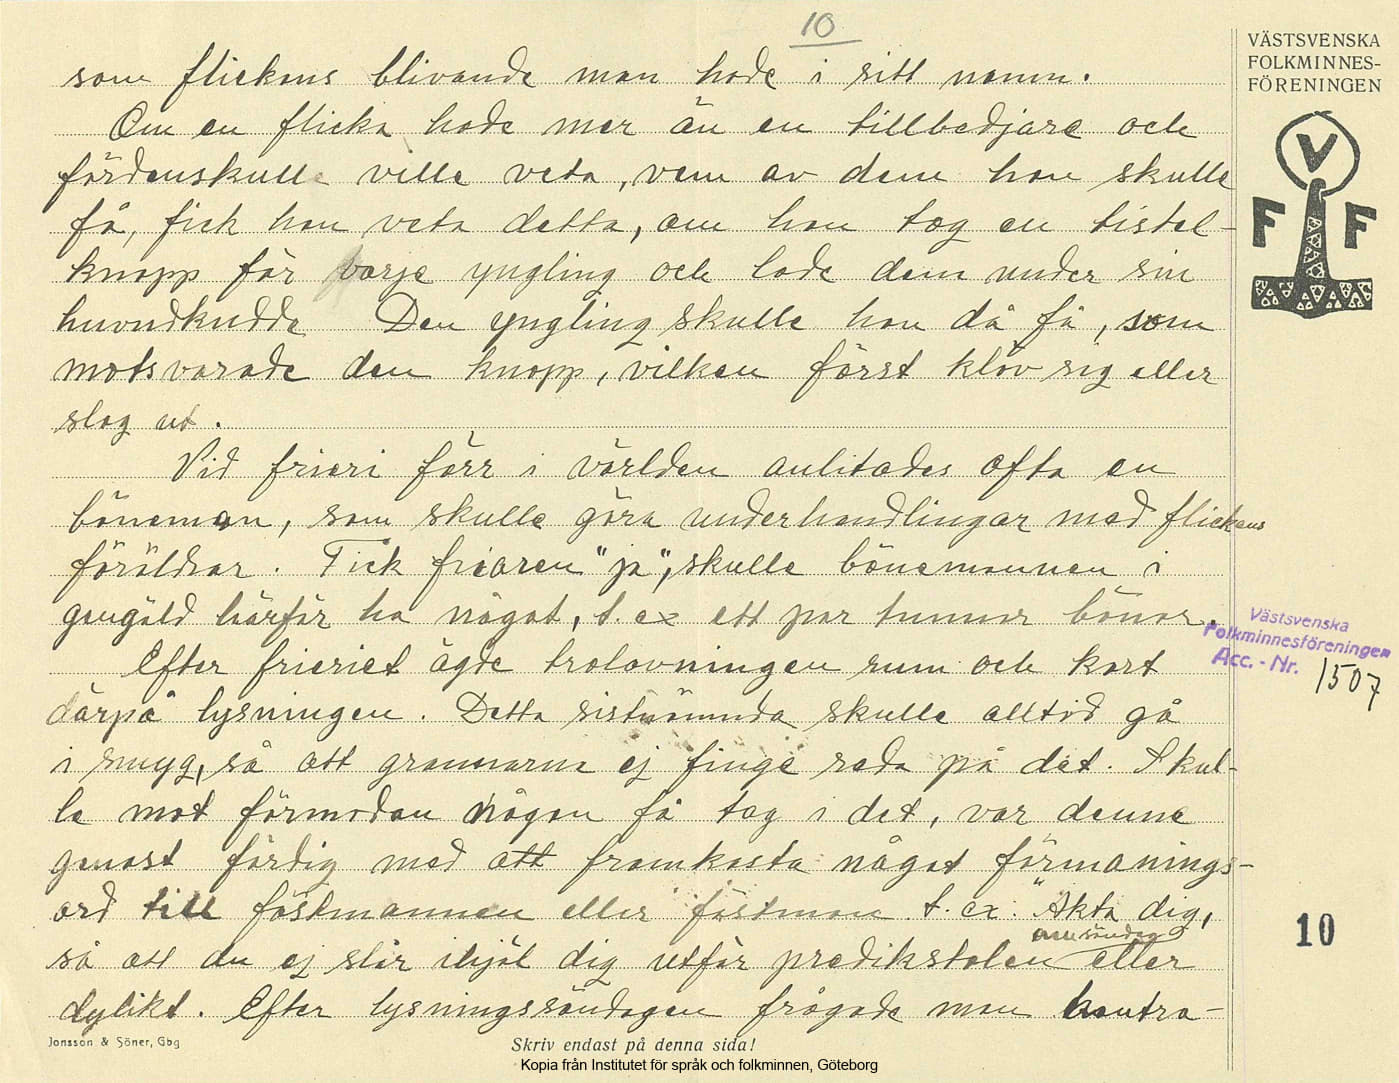 10
VÄSTSVENSKA
FOLKMINNES-
FÖRENINGEN
V
F F
som flickans blivande man hade i sitt namn.
Om en flicka hade mer än en tillbedjare och
fördenskulle ville veta, vem av dem hon skulle
få, fick hon veta detta, om hon tog en tistel-
knopp för varje yngling och lade dem under sin
huvudkudde Den yngling skulle hon då få, som
motsvarade den knopp, vilken först klöv sig eller
slog ut.
Vid frieri förr i världen anlitades ofta en
böneman, som skulle göra underhandlingar med flickans
föräldrar. Fick friaren "ja", skulle bönemannen i
gengäld härför ha något, t. ex ett par tunnor bönor.
Efter frieriet ägde trolovningen rum och kort
därpå lysningen. Detta sistnämnda skulle alltid gå
i smyg, så att grannarna ej finge reda på det. Skul-
le mot förmodan någon få tag i det, var denne
genast färdig med att framkasta något förmanings-
ord till fästmannen eller fästman t. ex. "Akta dig,
om söndag
så att du ej slår ihjäl dig utför predikstolen eller
dylikt. Efter lysningssöndagen frågade man kontra-
Västsvenska
Folkminnesföreningen
Acc. - Nr. 1507
10
Jonsson & Söner, Gbg
Skriv endast på denna sida!
Kopia från Institutet för språk och folkminnen, Göteborg